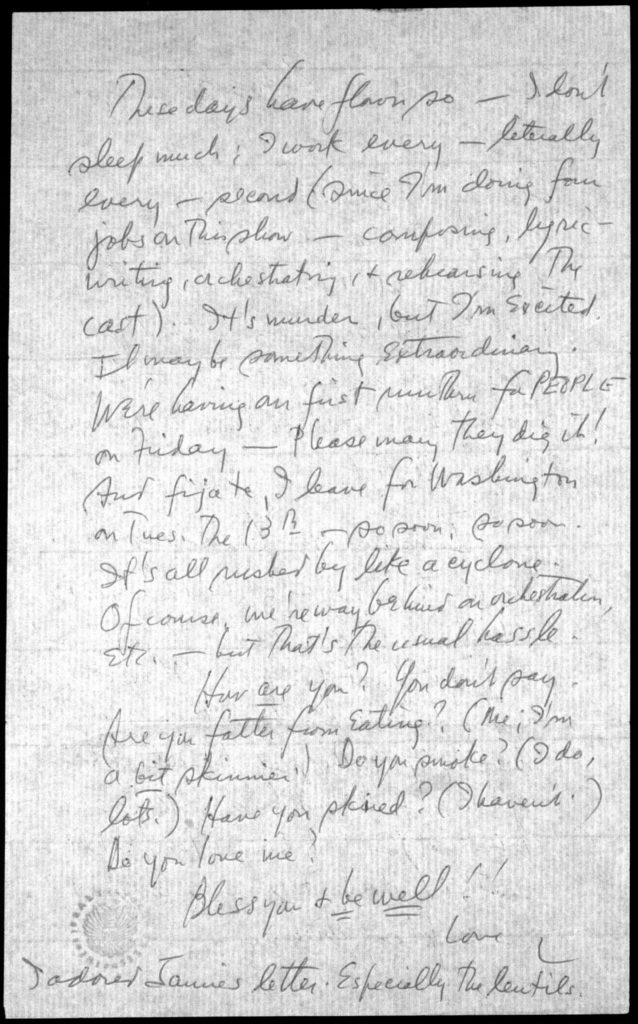 These days have flown so — I don't
sleep much; I work every — literally
every — second (since I'm doing four
jobs on this show — composing, lyric-
writing, orchestrating, & rehearsing the
cast). It's murder, but I'm excited.
It may be something Extraordinary.
We're having our first runthru for PEOPLE
on Friday — Please may they dig it!
And fijate, I leave for Washington
on Tues. the 13th — so soon, so soon.
It's all rushed by like a cyclone.
Of course, we're way behind on orchestration,
etc. — but that's the usual hassle.
How are you? You don't say.
Are you fatter from Eating? (Me, I'm
a bit skinnier.) Do you smoke? (I do,
lots.) Have you skiied? (I haven't.)
Do you love me?
Bless you & be well!!
Love L
I adored Jamie's letter. Especially the lentils.